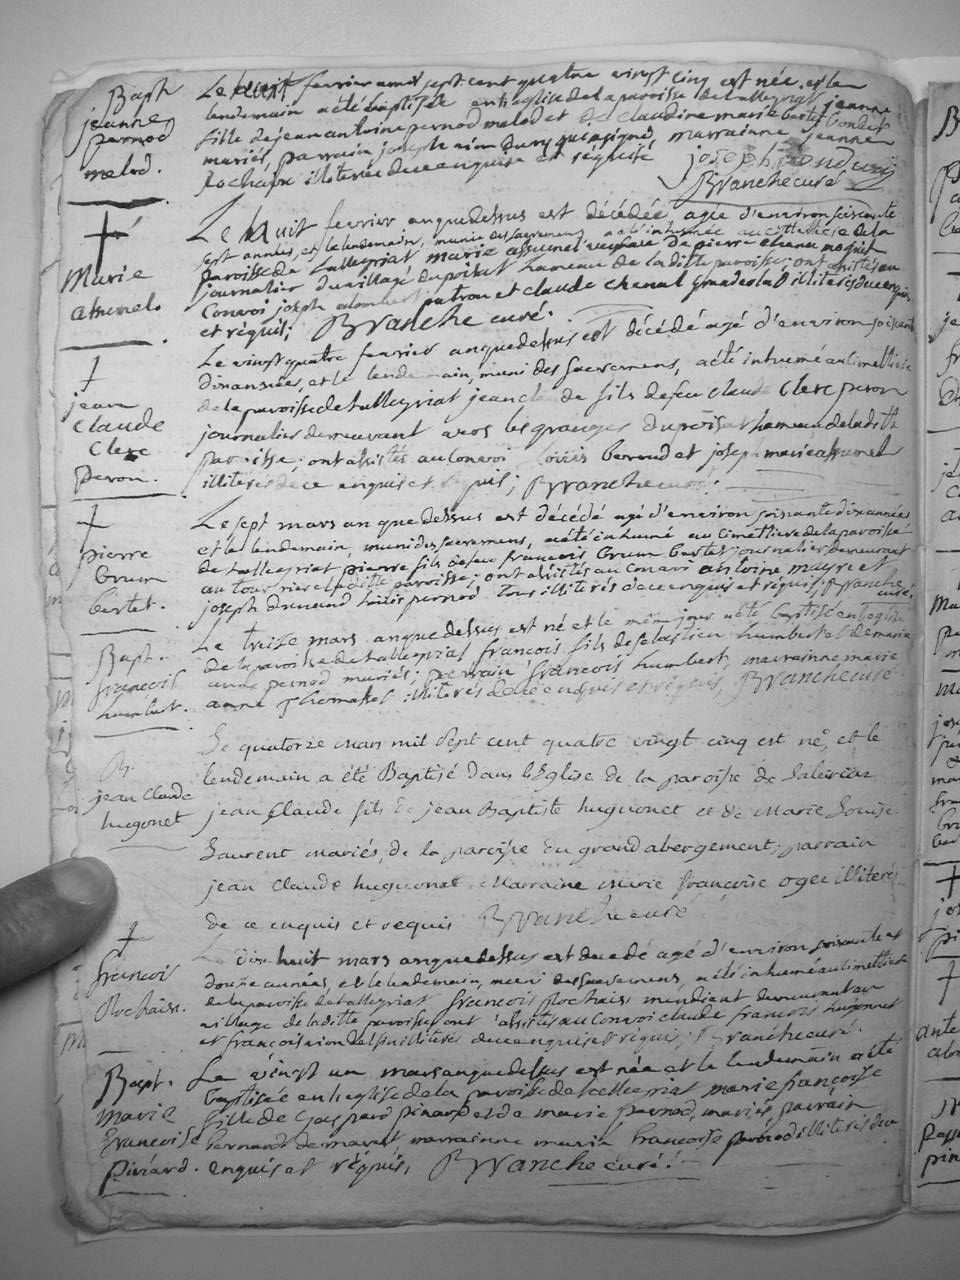 Bapt
jeanne
pernod
melod.
Le huit fevrier mil sept cent quatre vingt cinq est née, et le
lendemain a été baptisée en l'eglise de la paroisse de talleyriat jeanne
fille de jean antoine pernod melod et de claudine marie bertet bondet
mariés, parrain joseph aimé dury qui a signé, marrainne jeanne
rochaix illiterée de ce enquise et réquise
Branche curé
†
Marie
assumel.
Le huit fevrier an que dessus est décédée, agée d'environ soixante
sept années, et le lendemain, munie des sacremens, a été inhumée au cimetiere de la
paroisse de talleyriat marie assumel veuve de pierre chenal moquet
journalier du village du poisat hameau de la ditte paroisse; ont assistés au
Convoi joseph alombert patron et claude chenal grandcola illiterés de ce enquis
et réquis; Branche curé.
†
jean
Claude
Clerc
peron.
Le vingt quatre fevrier an que dessus est décédé agé d'environ soixante
dix années, et le lendemain, muni des sacremens, a été inhumé au cimettiere
de la paroisse de talleyriat jean claude fils de feu claude Clerc peron
journalier demeurant aros les granges du poisat hameau de la ditte
paroisse; ont assistés au Convoi louis beroud et joseph marie assumel
illiterés de ce enquis et requis; Branche curé.
†
pierre
brum
bertet.
Le sept mars an que dessus est décédé agé d'environ soixante dix années
et le lendemain, muni des sacremens, a été inhumé au cimettiere de la paroisse
de talleyriat pierre fils de feu françois brum bertet journalier demeurant
au tour riere la ditte paroisse; ont assistés au Convoi antoine mayre et
joseph pernod tous illiterés de ce enquis et réquis; Branche
curé.
Bapt.
françois
humbert.
Le treize mars an que dessus est né et le même jour a été baptisé en l'eglise
de la paroisse de talleyriat françois fils de sebastien humbert et de marie
anne pernod mariés; parrain françois humbert, marrainne marie
anne thomasset illiterés de ce enquis et réquis, Branche curé
B.
jean Claude
hugonet
Le quatorze mars mil sept cent quatre vingt cinq est né, et le
lendemain a été Baptisé dans l'Eglise de la paroisse de
jean Claude fils de jean Baptiste huguonet et de Marie Louise
Laurent mariés, de la paroisse du grand abergement; parrain
jean Claude huguonet Marraine Marie françoise oger illiterés
de ce enquis et requis Branche curé
†
françois
Rochaix.
Le dix huit mars an que dessus est decedé agé d'environ soixante et
douze années, et le lendemain, muni des sacremens, a été inhumé au cimettiere
de la paroisse de talleyriat françois Rochaix mendiant demeurant au
village de la ditte paroisse ont assistés au Convoi claude françois hugonnet
et françois illiterés de ce enquis et réquis; Branche curé.
Bapt.
Marie
françoise
Pinard.
Le vingt un mars an que dessus est née et le lendemain a été
baptisée en l'eglise de la paroisse de talleyriat marie françoise
fille de gaspard pinard et de marie pernod, mariés, parrain
bernard demaret marrainne marie françoise pernod illiterés de ce
enquis et réquis, Branche curé.